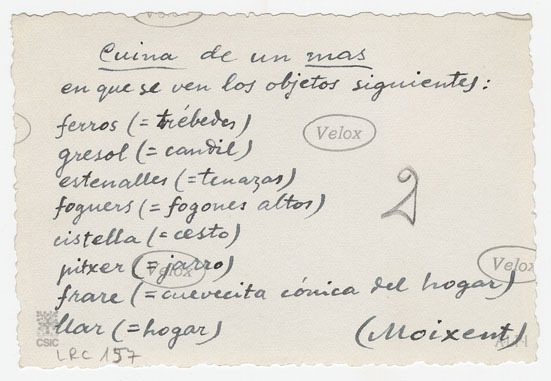 Cuina de un mas
en que se ven los objetos siguientes:
ferros (= trébedes)
gresol (= candil)
estenalles (= tenazas)
foguers (= fogones altos)
cistella (= cesto)
pitxer (= jarro)
frare (= cuevecita cónica del hogar)
llar (= hogar)
(Moixent)
LRC 157
Velox
Velox
Velox
CSIC